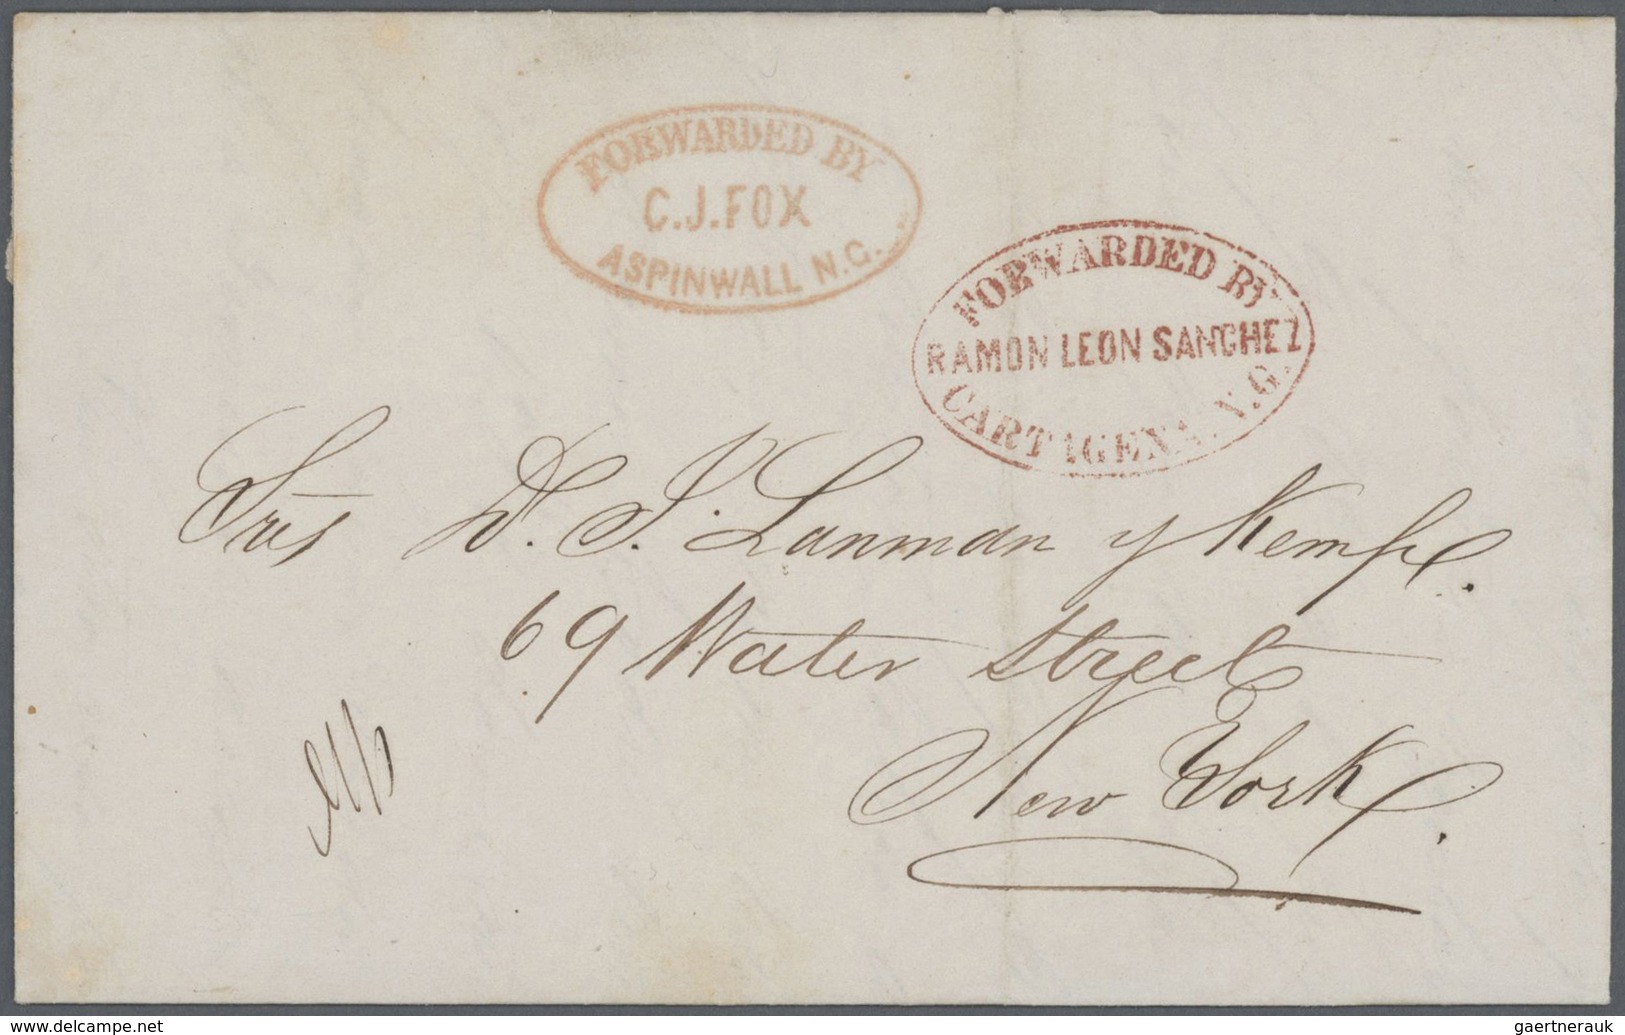 FORWARDED BY
C.J.FOX
ASPINWALL N.G.
FORWARDED BY
RAMON LEON SANCHEZ
CARTAGENA. N.G.
Srес D. T. Lanman y Kemp.
69 Water Street
New York.
www.delcampe.net
gaertnerauk